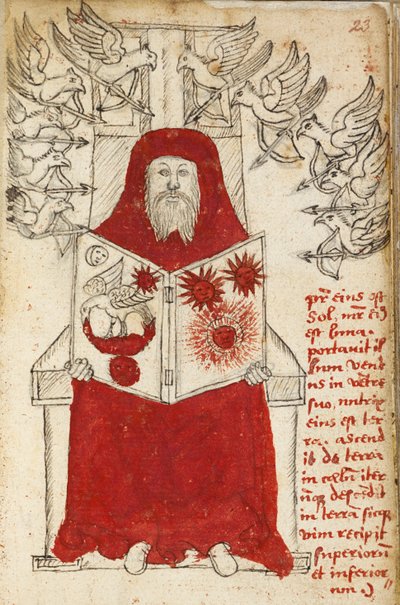 23
pr̄ eius est
Sol, mr̄ eiꝰ
est luna.
portauit il
lum vent
us in vētre
suo, nutrix
eius est ter
ra. ascend
it de terra
in cœlū iter
ūq; descēdit
in terrā sicq;
vim recipit
superiorū
et inferior